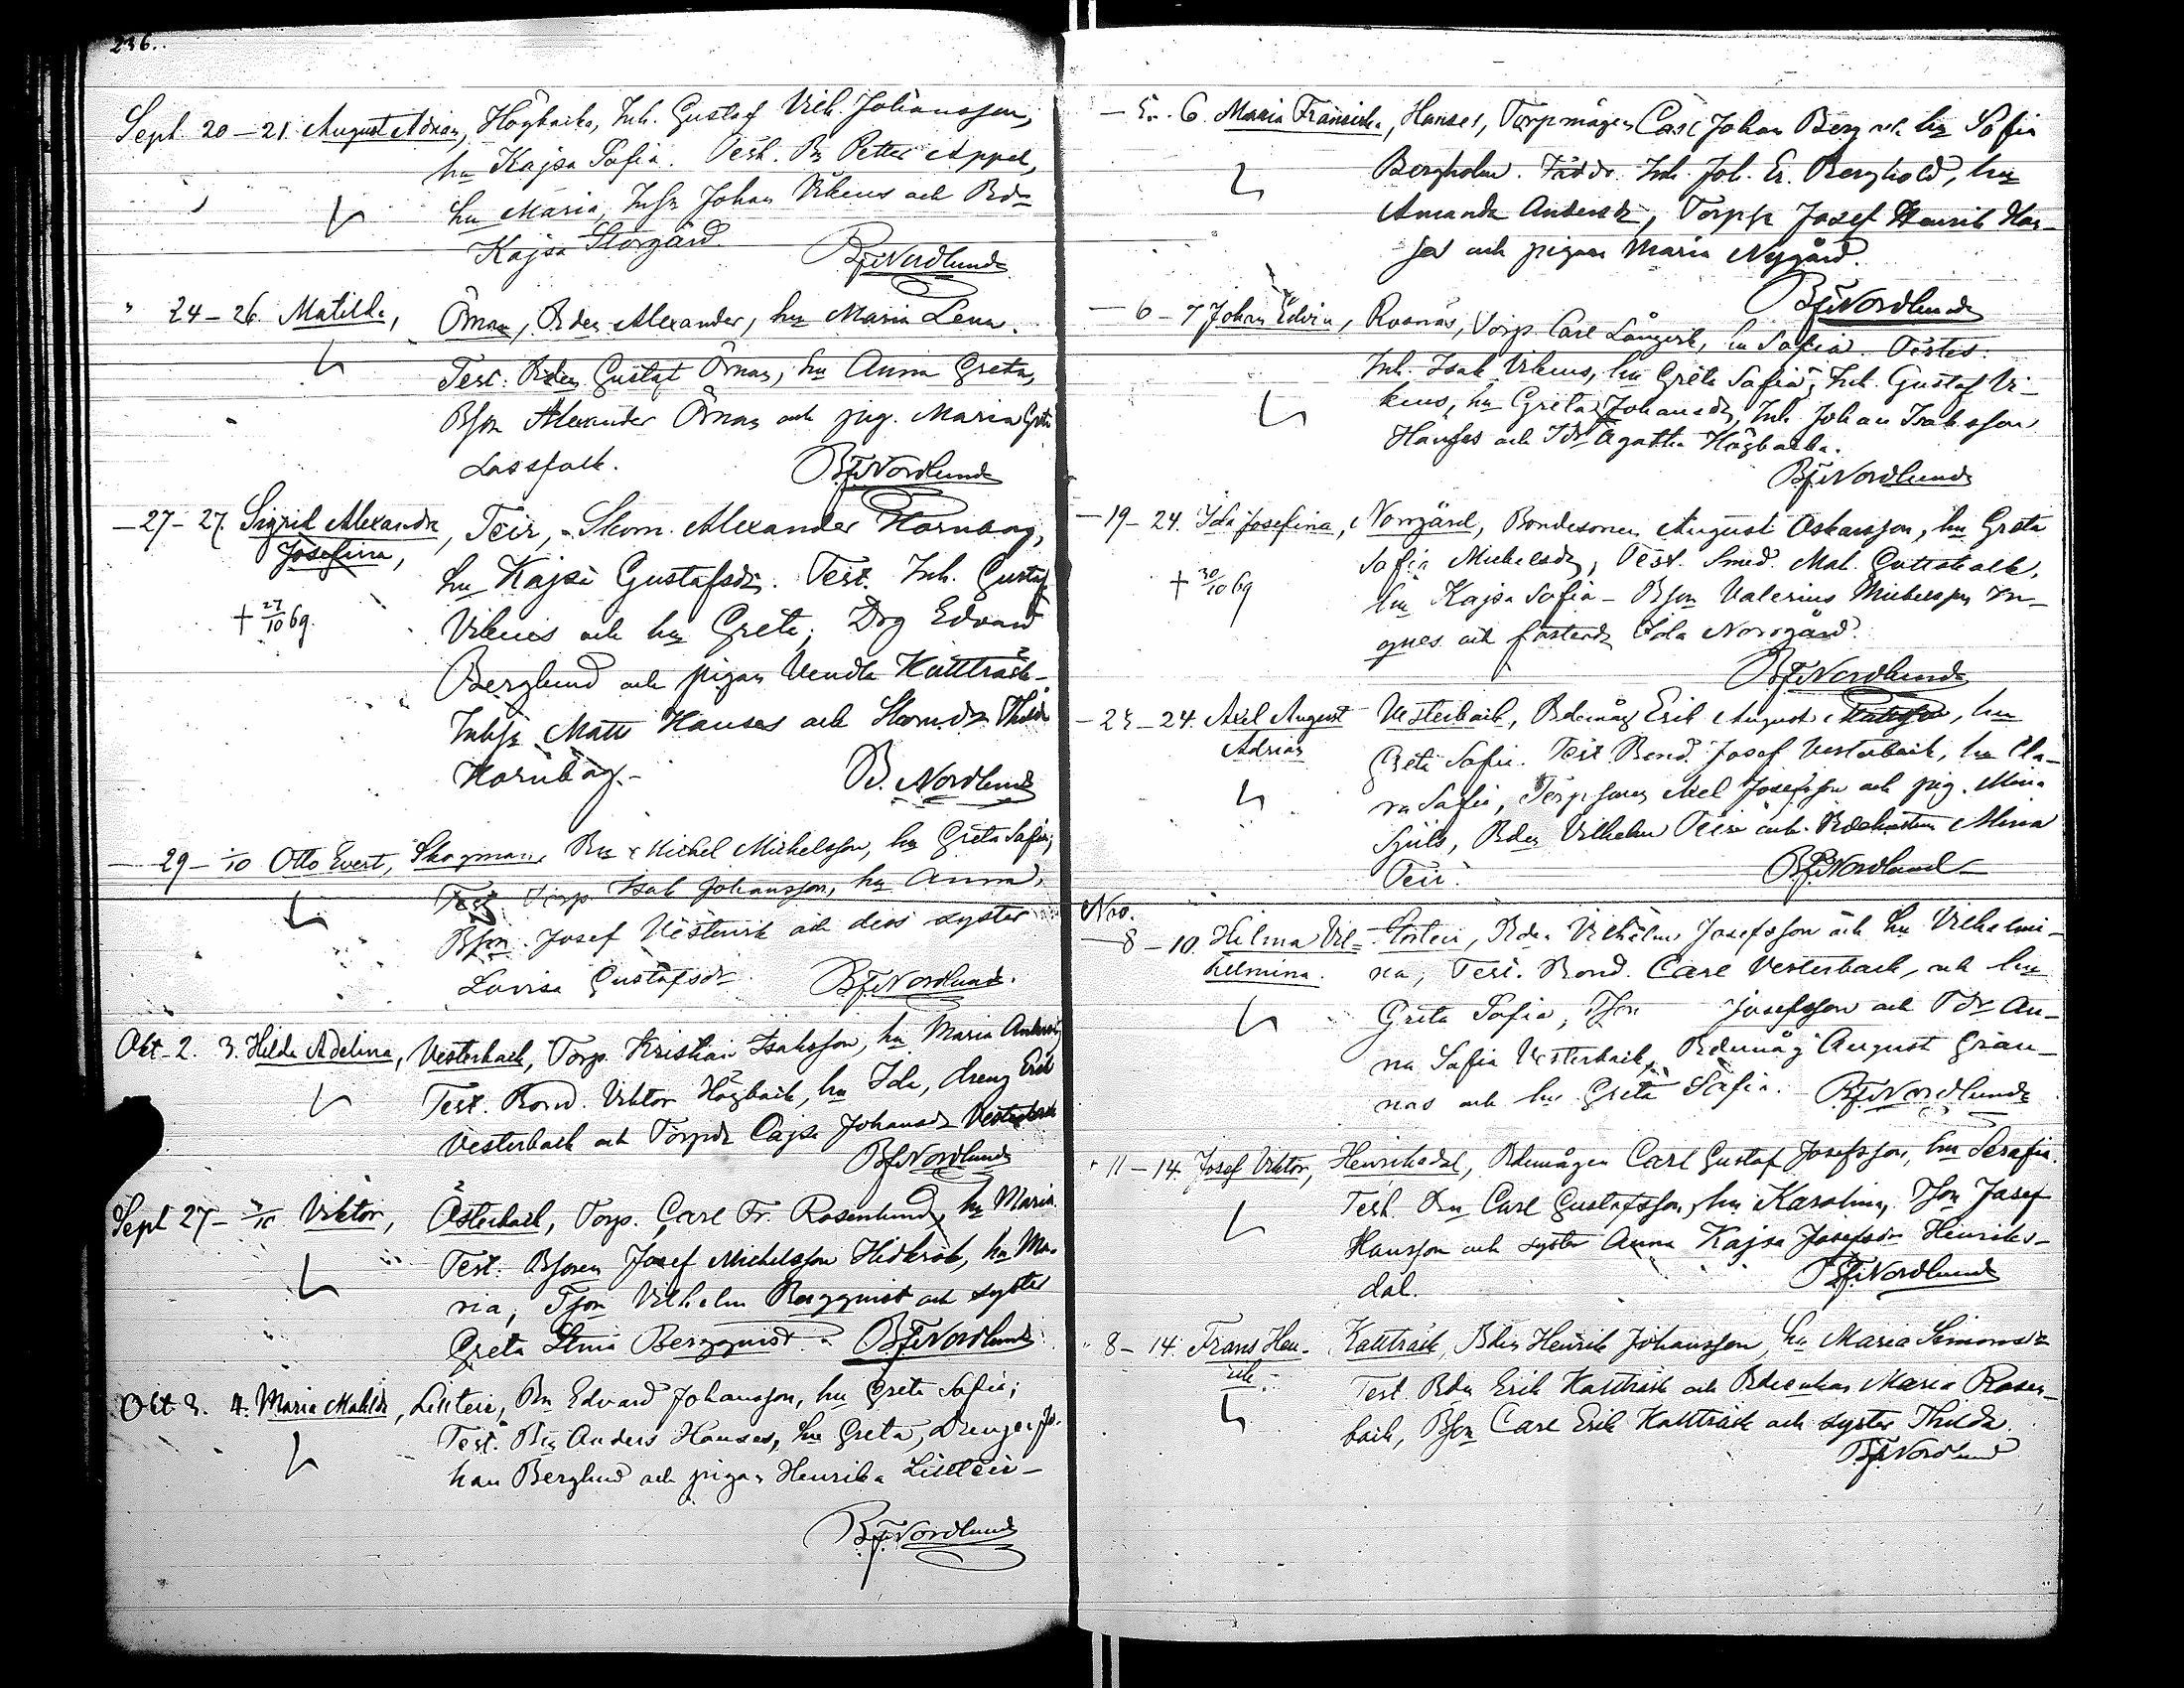 236.
Sept. 20 – 21. August Adrian, Högbacka, Inh. Gustaf Vilh. Johansson,
hu Kajsa Sofia. Test. Bn Petter Appel,
hu Maria, Inhsn Johan Vikens och Bdr
Kajsa Storgård.
B.F. Nordlund
" 24 – 26. Matilda, Örnas, Bden Alexander, hu Maria Lena.
Test: Bden Gustaf Örnas, hu Anna Greta,
Bson Alexander Örnas och pig. Maria Greta
Lassfolk.
B.F. Nordlund
– 27 – 27. Sigrid Alexandra, Teir, Skom. Alexander Hornborg,
Josefina, hu Kajsa Gustafsdr. Test. Inh. Gustaf
† 27/10 69. Vikens och hu Greta, Drg Edvard
Berglund och pigan Vendla Kaitträsk –
Inhsn Matts Hanses och Skomdr Thilda
Hornborg. –
B. Nordlund
– 29 – 1/10 Otto Evert, Skogman, Bn Michel Michelsson, hu Greta Sofia;
Test. Torp. Isak Johansson, hu Anna,
Bson Josef Vestervik och dess syster
Lovisa Gustafsdr.
B.F. Nordlund.
Okt. 2. 3. Hilda Adelina, Vesterback, Torp. Kristian Isaksson, hu Maria
Test. Bond. Viktor Högback, hu Ida, dreng Erik
Vesterback och Torpdr Cajsa Johansdr Vesterback
B.F. Nordlund
Sept 27 – 3/10 Viktor, Österback, Torp. Carl Fr. Rosenlund, hu Maria.
Test: Bsonen Josef Michelsson Hidkrok, hu Ma-
ria, Tson Vilhelm Bergqvist och syster
Greta Stina Bergqvist.
B.F. Nordlund
Okt 3. 4. Maria Matilda, Lillteir, Bn Edvard Johansson, hu Greta Sofia;
Test. Bn Anders Hanses, hu Greta, Drengen Jo-
han Berglund och pigan Henrika Lillteir –
B.F. Nordlund
– 5. . 6. Maria Fransiska, Hanses, Torpmågen Carl Johan Berg och hu Sofia
Bergholm. Inh. Joh. Er. Berghold, hu
Amanda Andersdr, Torpsn Josef Henrik Han-
ses och pigan Maria Nygård.
B.F. Nordlund
– 6 – 7 Johan Edvin, Rosnäs, Torp. Carl Långvik, hu Sofia. Testes:
Inh. Isak Vikens, hu Greta Sofia, Inh. Gustaf Vi-
kens, hu Greta Johansdr, Inh. Johan Isaksson
Hanses och Tdr Agatha Högbacka.
B.F. Nordlund
– 19 – 24. Ida Josefina, Norrgård, Bondesonen August Oskarsson, hu Greta
Sofia Michelsdr, Test. Smed. Mat. Guttskalk,
† 30/10 69 hu Kajsa Sofia – Bson Valerius Michelsson In-
gves och fosterdr Ida Norrgård.
B.F. Nordlund
– 23 – 24. Axel August Vesterback, Bdemåg Erik August, hu
Adrian Greta Sofia. Test. Bond. Josef Vesterback, hu Cla-
ra Sofia, Torpsonen Axel Josefsson och pig. Mina
Sjuls, Bden Vilhelm Teir och Mina
Teir.
B.F. Nordlund
Nov.
– 8 – 10. Hilma Vil- Storteir, Bden Vilhelm Josefsson och hu Vilhelmi-
helmina. na, Test. Bond. Carl Vesterback, och hu
Greta Sofia, Tson Josefsson och Tdr An-
na Sofia Vesterback, Bdemåg August Grän-
näs och hu Greta Sofia.
B.F. Nordlund
" 11 – 14. Josef Viktor, Henriksdal, Bdemågen Carl Gustaf Josefsson, hu Serafia.
Test. Bn Carl Gustafsson, hu Karolina, Tson Josef
Hansson och syster Anna Kajsa Josefsdr Henriks-
dal.
B.F. Nordlund
" 8 – 14. Frans Hen- Kaitträsk, Bden Henrik Johansson, hu Maria Simonsdr
rik. Test. Bden Erik Kaitträsk och Bdeenkan Maria Rosen-
back, Bson Carl Erik Kaitträsk och syster Thilda.
B.F. Nordlund